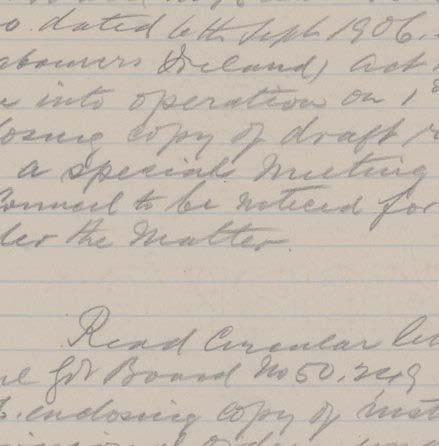 o. dated 6th Sept 1906.
abourers (Ireland) Act
into operation on 1st
losing copy of draft
a special Meeting
Council to be noticed for
der the Matter.
Read Circular le
Board No 50,249
enclosing copy of inst